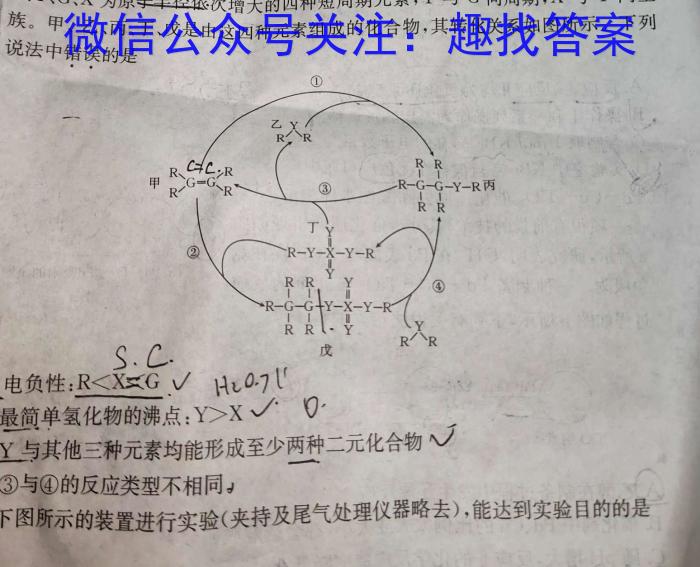 G、X为原子半径依次增大的四种短周期元素,Y与G同周期,
族。甲、乙、丙、丁、戊是由这四种元素组成的化合物,其转化关系如图所示。下列
微信公众号关注：趣找答案
说法中错误的是
①
乙 Y
R R
R C=C R
甲 G=G
R R
③
R R
R-G-G-Y-R 丙
R R
丁 Y
②
R-Y-X-Y-R
Y
④
R R Y
R-G-G-Y-X-Y-R
R R Y
Y
R R
戊
S. C.
电负性:R<X=G √ H2 0.71
最简单氢化物的沸点:Y>X √ O.
Y与其他三种元素均能形成至少两种二元化合物 √
③与④的反应类型不相同
下图所示的装置进行实验(夹持及尾气处理仪器略去),能达到实验目的的是